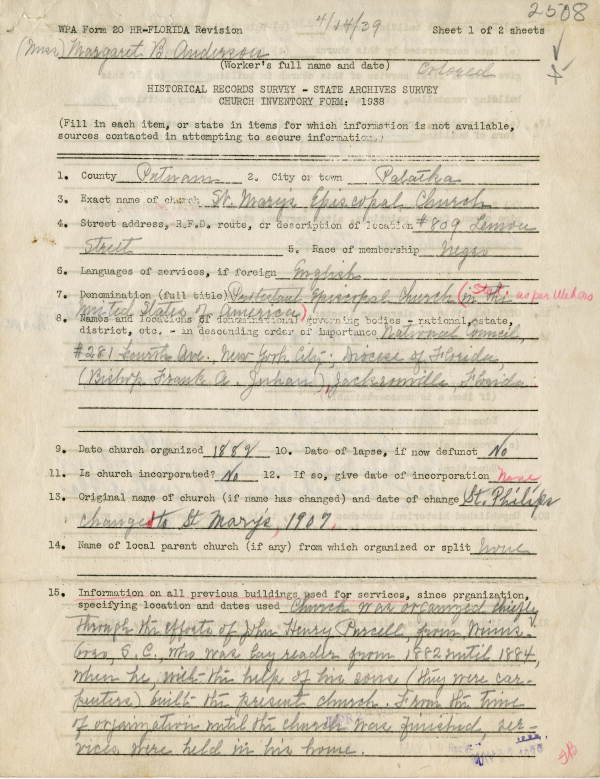 2508
WPA Form 20 HR-FLORIDA Revision 4/14/39 Sheet 1 of 2 sheets
(Miss) Margaret B. Anderson
(Worker's full name and date) Colored
HISTORICAL RECORDS SURVEY - STATE ARCHIVES SURVEY
CHURCH INVENTORY FORM: 1938
(Fill in each item, or state in items for which information is not available,
sources contacted in attempting to secure information.)
1. County Putnam 2. City or town Palatka
3. Exact name of church St. Mary's Episcopal Church
4. Street address, R.F.D. route, or description of location #809 Lemon
Street 5. Race of membership Negro
6. Languages of services, if foreign English
7. Denomination (full title) Protestant Episcopal Church (in the as per
United States of America)
8. Names and locations of denominational governing bodies - national, state,
district, etc. - in descending order of importance National Council,
#281 Fourth Ave. New York City; Diocese of Florida,
(Bishop Frank A. Juhan), Jacksonville, Florida.
9. Date church organized 1882 10. Date of lapse, if now defunct No
11. Is church incorporated? No 12. If so, give date of incorporation None
13. Original name of church (if name has changed) and date of change St. Philips
changed to St Mary's, 1907.
14. Name of local parent church (if any) from which organized or split None
15. Information on all previous buildings used for services, since organization,
specifying location and dates used Church was organized chiefly
through the efforts of John Henry Purcell from Winns-
boro, S.C., who was lay reader from 1882 until 1884,
when he, with the help of his sons (they were car-
penters) built the present church. From the time
of orgainization until the church was finished, ser-
vices were held in his home.